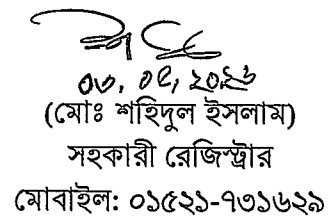 ০৩, ০৫, ২০২৬
(মোঃ শহিদুল ইসলাম)
সহকারী রেজিস্ট্রার
মোবাইল: ০১৫২১-৭৩১৬২৯